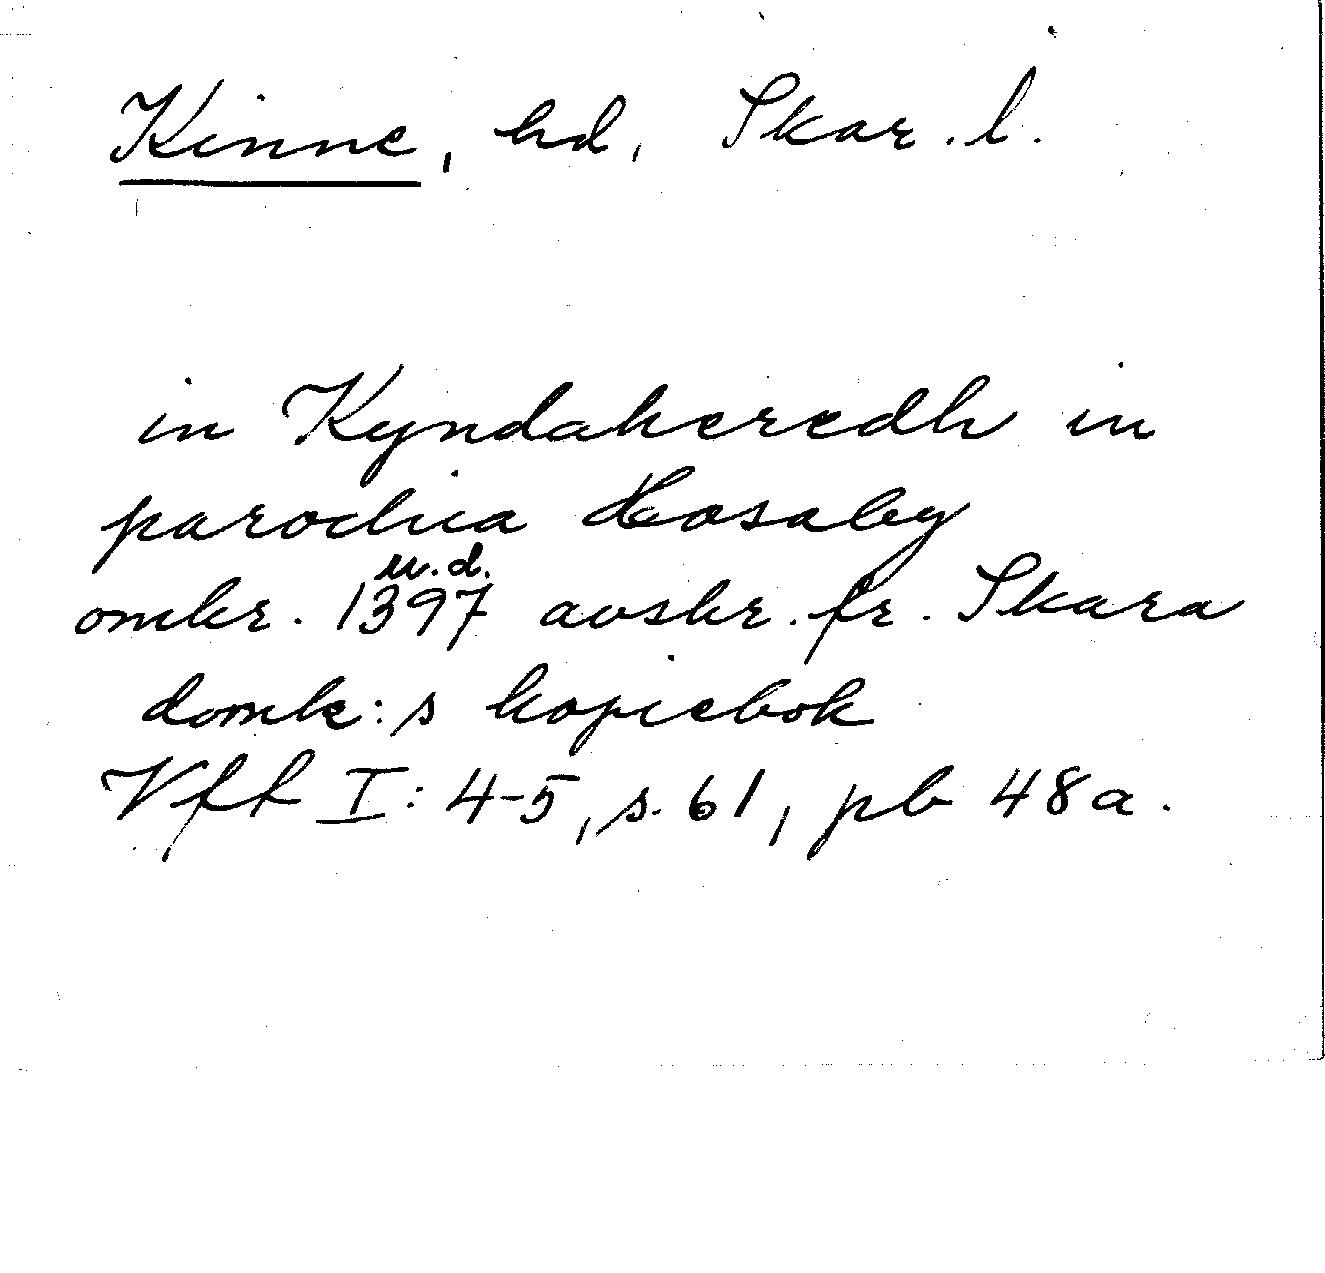 Kinne, hd, Skar. l.
in Kyndaheredh in
parochia Hosaby
u.d.
omkr. 1397 avskr. fr. Skara
domk:s kopiebok
Vff I: 4-5, s. 61, pb 48a.